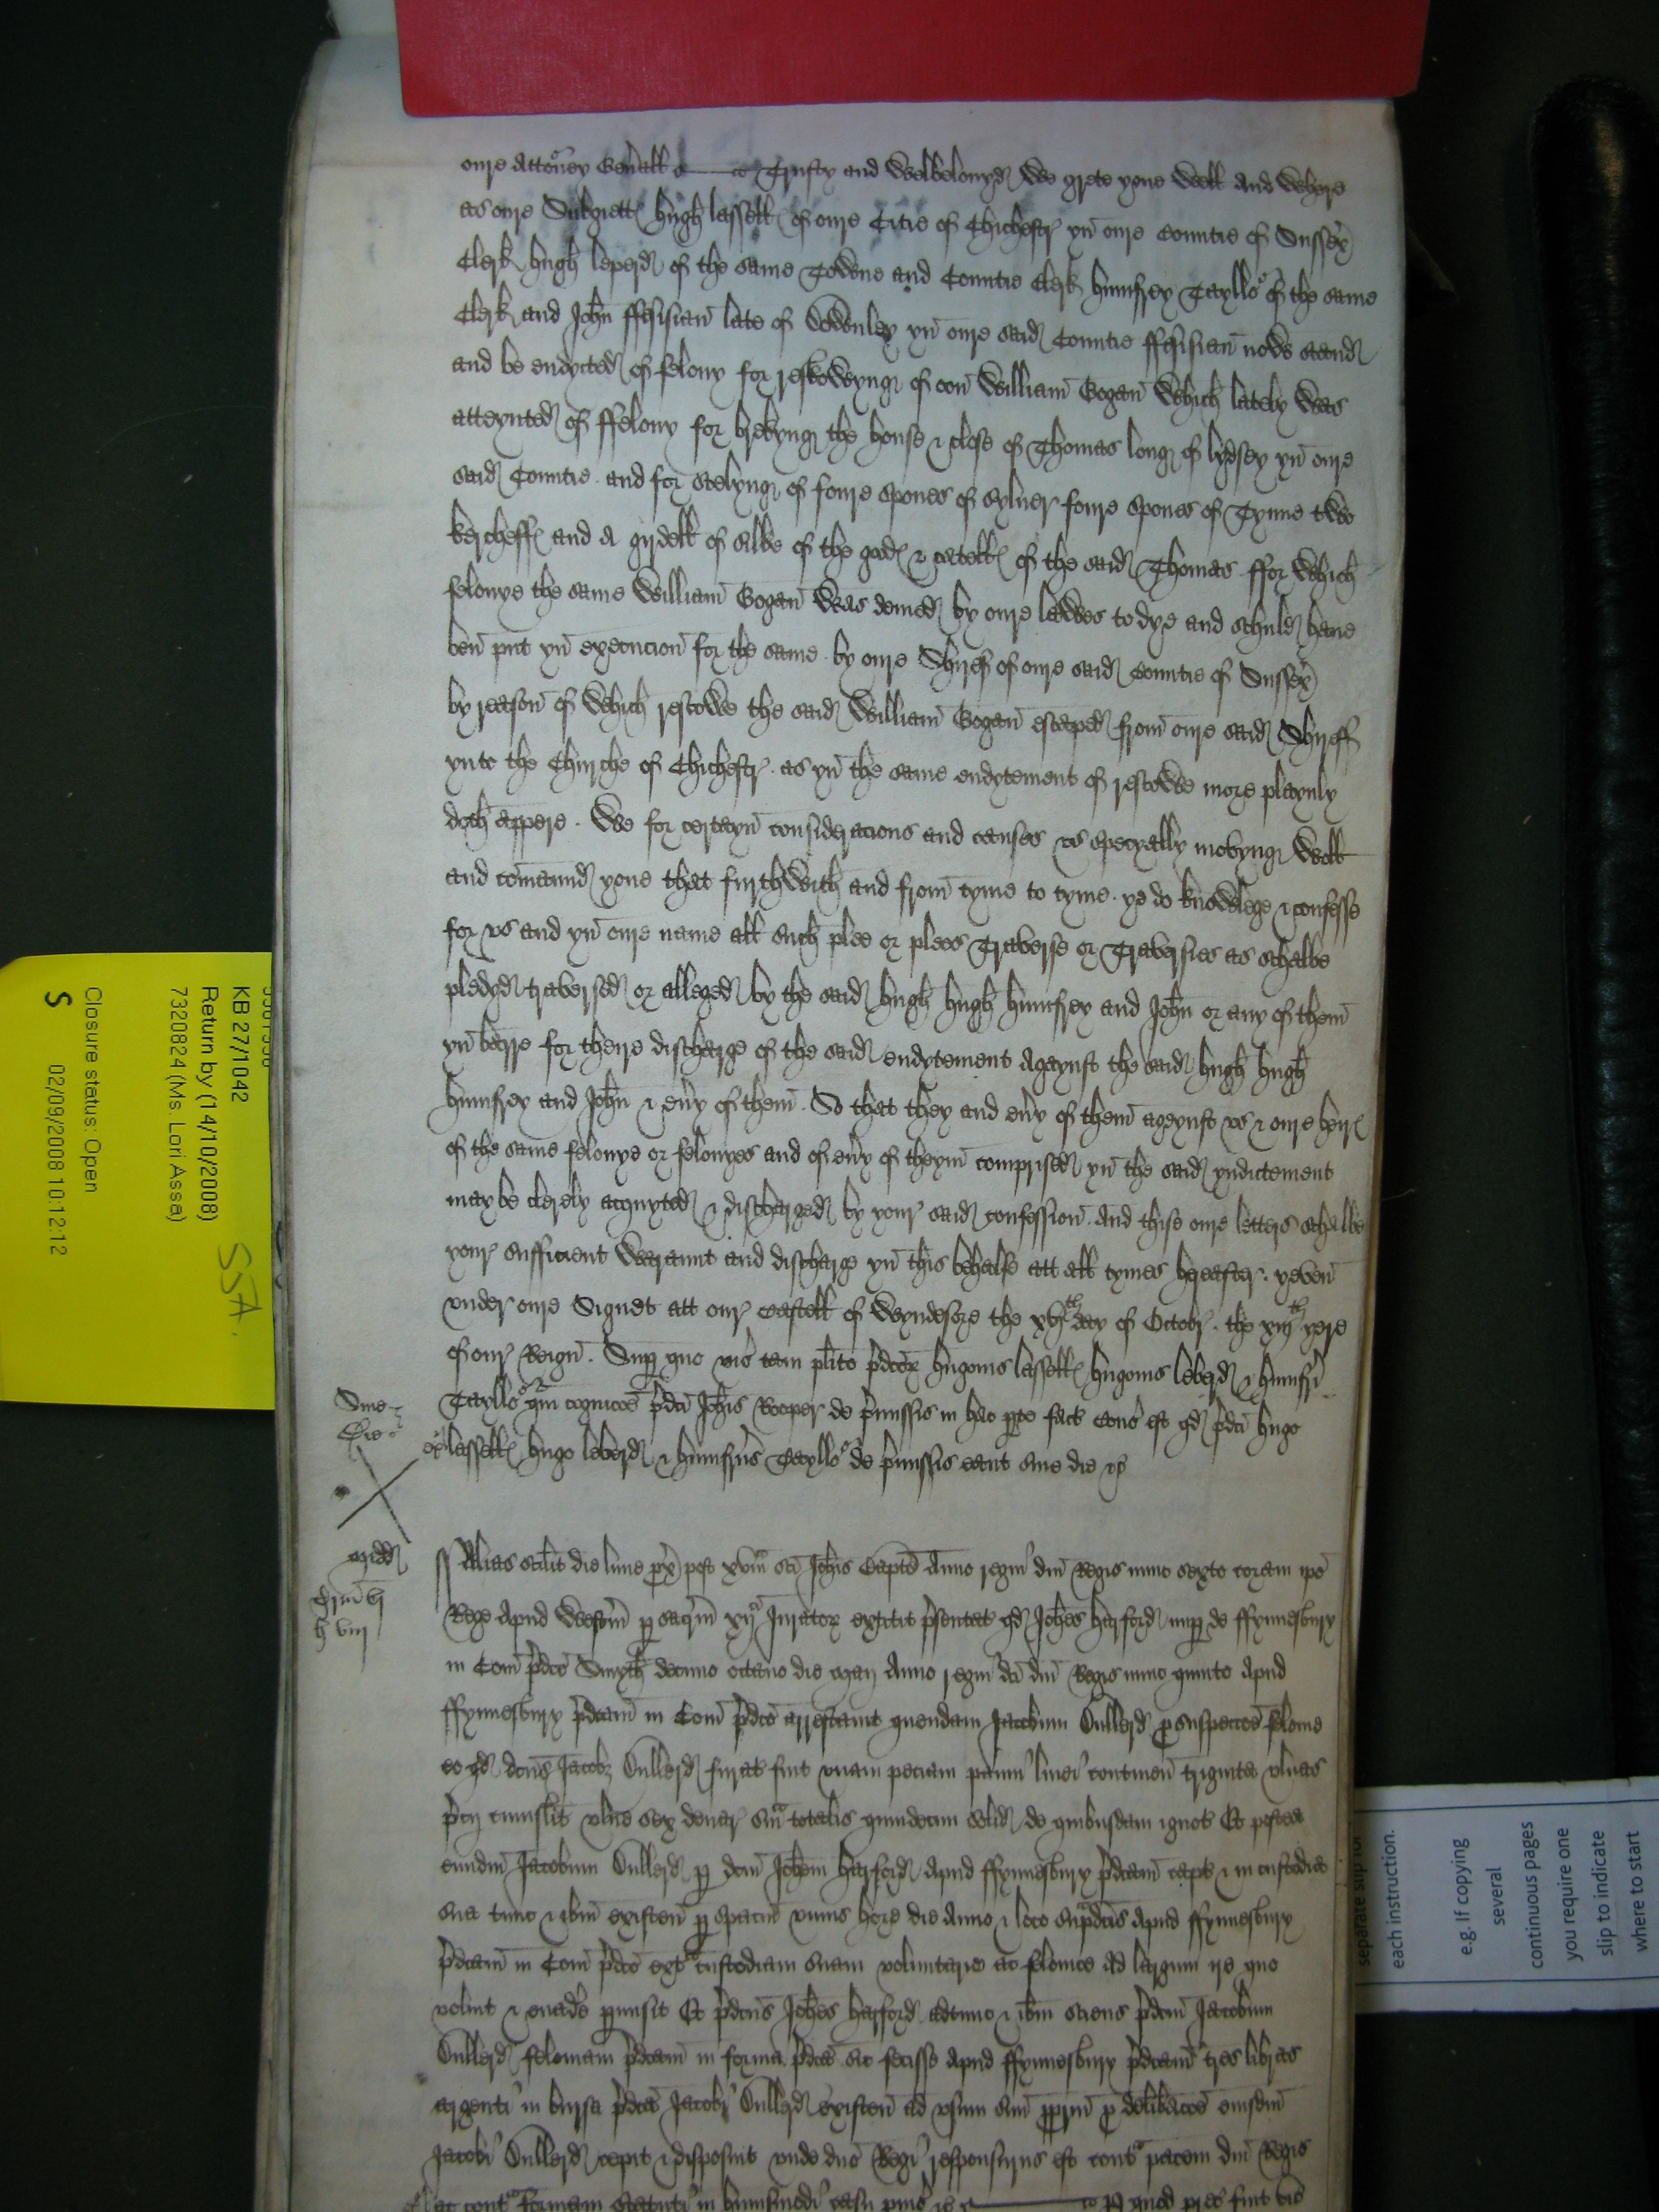 oure Attorney Gen'all &c Trusty and Welbelouyd We grete youe Well And Where
as oure Subgiett hugh lassell of oure Citie of Chichestr yn oure Countie of Sussex
Clerk hugh leperd of the same Towne and Countie Clerk humfrey Tayllor of the same
Clerk and John ffesisian late of yn oure said Countie ffesisian nowe stand
and be endycted of felony for reskowyng of oon William Gogan Which lately Was
atteynted of ffelony for brekyng the house & close of Thomas long of lydsey yn oure
said Countie and for stelyng of foure spones of sylver foure spones of Tynne two
kercheff and A girdell of silke of the god & catell of the said Thomas ffor Which
felonye the same William Gogan Was demed by oure lawes to dye and schuld haue
ben put yn execucion for the same by oure Shiref of oure said Countie of Sussex
by reason of Which rescowe the said William Gogan escaped from oure said Shireff
ynto the Chirche of Chichestr as yn the same endytement of rescowe more playnly
doth appere We for certayn consideracions and causes vs specyally movyng Woll
and comaund youe that furthwith and from tyme to tyme ye do knowlege & confesse
for vs and yn oure name all such plee or plees Traverse or Traversies as schalbe
pledyd traversed or alleged by the said hugh hugh humfrey and John or any of them
yn barre for theire discharge of the said endytement Agaynst the said hugh hugh
humfrey and John & eu'y of them So that they and eu'y of them ageynst vs & oure heir
of the same felonye or felonyes and of eu'y of theym comprised yn the said yndictement
may be clerely acquyted & discharged by your said confession And thise oure letters schalbe
your sufficient Warannt and discharge yn this behalfe att all tymes hereafter yeven
vnder oure Signet att our castell of Wyndesore the day of Octobr the xiijth yere
of our Reign Sup quo vis' tam pl'ito p'dcor hugonis lassell hugonis leberd & humfri
Tayllor qm cognicoe p'dci Joh'is Rooper de p'missis in hac p'te fact Cons' est qd p'dci hugo
lassell hugo leberd & humfrus Tayllor de p'missis eant sine die &c
Sine
Die
Midd
Alias scil't die lune px' post xvam sci Joh'is Bapte Anno regni dni Regis nunc sexto coram ipo
Rege Apud Westm p sacrm xij Jurator extitit p'sentat qd Joh'es harford nup de ffynnesbury
in Com p'dco Smyth decimo octauo die Maij Anno regni dci dni Regis nunc quinto Apud
ffynnesbury p'dcam in Com p'dco arrestauit quendam Jacobum Bullerd p suspeccoe felonie
eo qd dcus Jacob Bullerd furat fuit vnam peciam panni linei continen triginta vlnas
p'cij cuiuslibt vlne sex denar' sm totalis quindecim solid de quibusdam ignot Et postea
eundm Jacobum Bullerd p dcm Joh'em harford Apud ffynnesbury p'dcam capt & in custodia
sua tunc & ibm existen p spacm vnius hore die Anno & loco sup'dcis Apud ffynnesbury
p'dcam in Com p'dco ext' custodiam suam voluntarie ac felonice Ad largum ire quo
voluit & evade' p'misit Et p'dcus Joh'es harford adtunc & ibm sciens p'dcm Jacobum
Bullerd feloniam p'dcam in forma p'dca sic fecisse Apud ffynnesbury p'dcam tres libras
argenti in bursa p'dci Jacobi Bullerd existen ad vsum suu pprm p delibacoe eiusdm
Jacobi Bullerd cepit & disposuit vnde dno Regi responsurus est cont' pacem dni Regis
ac cont' formam statuti in huiusmodi casu &c
KB 27/1042
Return by (14/10/2008)
7320824 (Ms. Lori Assa)
Closure status: Open
S 02/09/2008 10:12:12
SSA.
each instruction.
e.g. If copying
several
continuous pages
you require one
slip to indicate
where to start